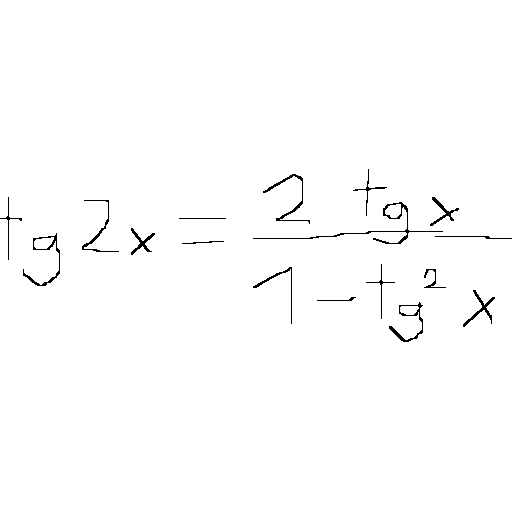 tg2x = 2 tgx / 1 - tg²x